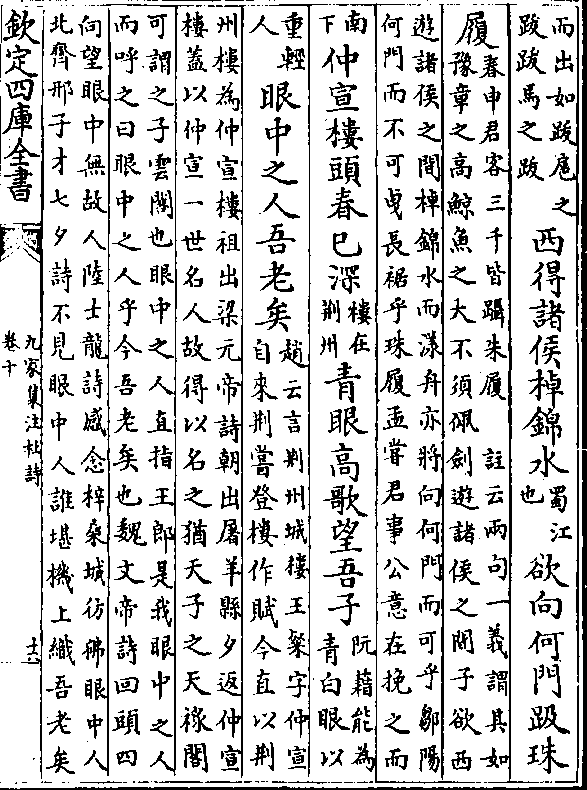 而出如跋扈之
跋跋馬之跋
西得諸侯棹錦水
蜀江
也
欲向何門趿珠
履
春申君客三千皆躡朱履 註云兩句一義謂其如
豫章之高鯨魚之大不須佩劍遊諸侯之間子欲西
遊諸侯之間棹錦水而漾舟亦將向何門而可乎鄒陽
何門而不可曳長裾乎珠履孟嘗君事公意在挽之而
南
下
仲宣樓頭春已深
樓在
荆州
青眼高歌望吾子
阮藉能為
青白眼以
重輕
人
眼中之人吾老矣
趙云言荆州城樓王粲字仲宣
自來荆嘗登樓作賦今直以荆
州樓為仲宣樓祖出梁元帝詩朝出屠羊縣夕返仲宣
樓蓋以仲宣一世名人故得以名之猶天子之天祿閣
可謂之子雲閣也眼中之人直指王郎是我眼中之人
而呼之曰眼中之人乎今吾老矣也魏文帝詩回頭四
向望眼中無故人陸士龍詩感念梓桑城彷彿眼中人
北齊邢子才七夕詩不見眼中人誰堪機上織吾老矣
欽定四庫全書
九家集注杜詩
卷十